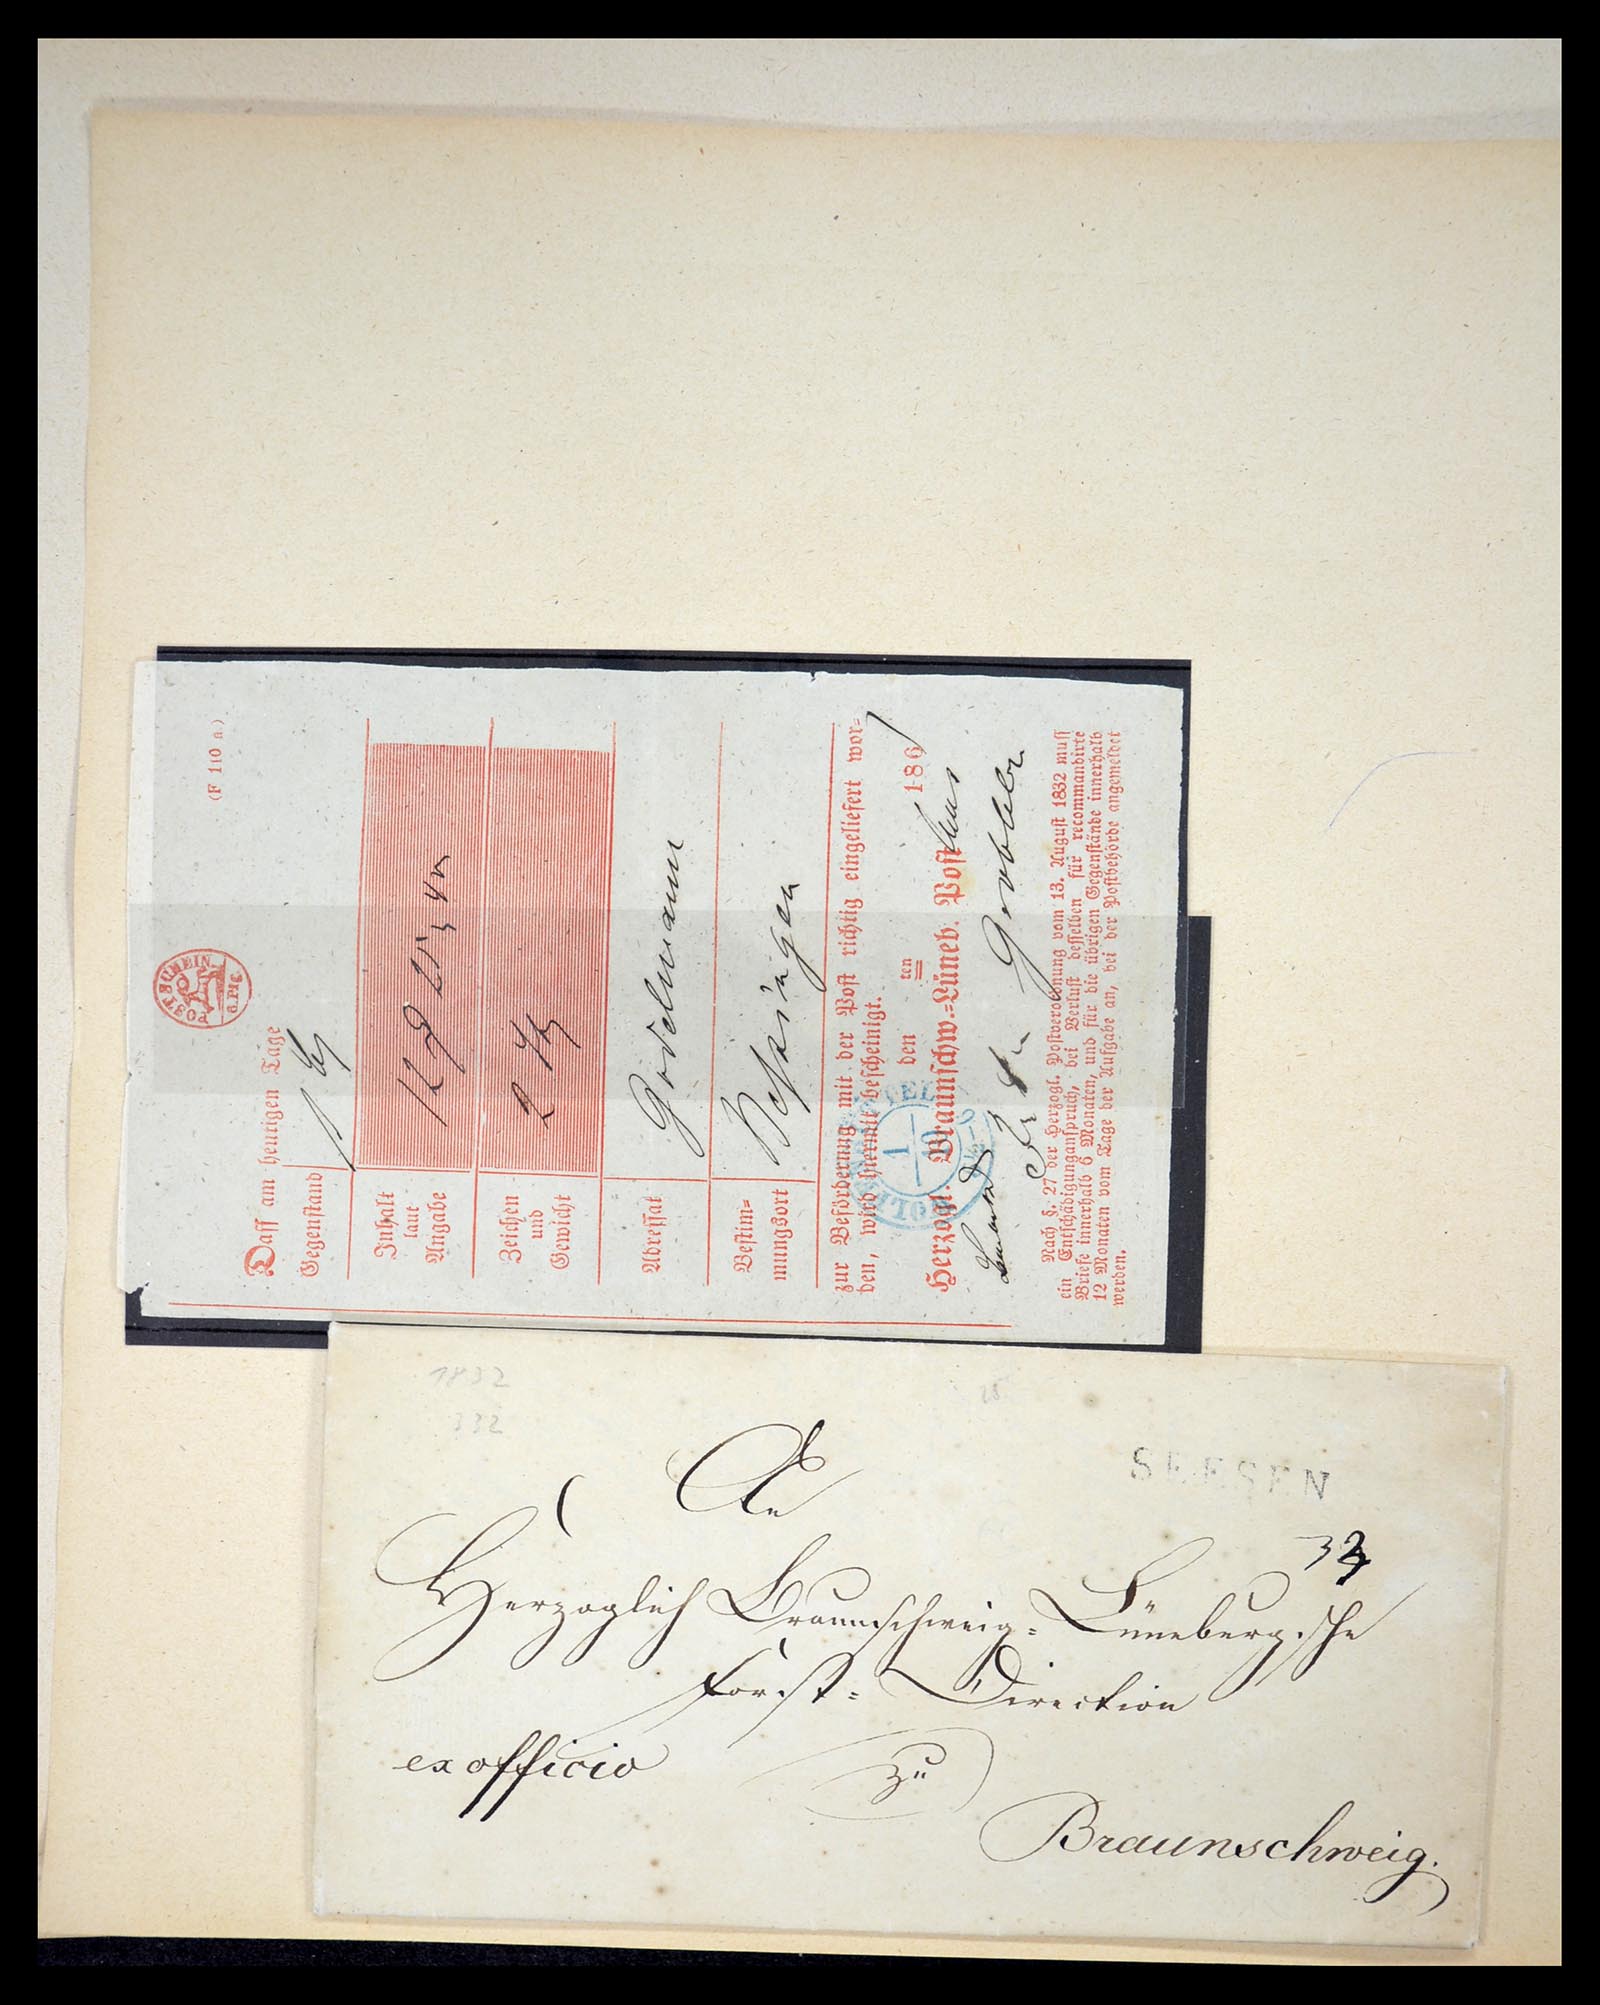 (F 110 a.)
POSTSCHEIN.
6 Pf.
Dass am heutigen Tage
Gegenstand
Inhalt
laut
Angabe
Zeichen
und
Gewicht
Adressat
Godelmann
Bestim=
mungsort
zur Beförderung mit der Post richtig eingeliefert wor=
den, wird hiermit bescheinigt.
den ten 186
Herzogl. Braunschw.=Lüneb. Post
Nach §. 27 der Herzogl. Postverordnung vom 13. August 1832 muß
ein Entschädigungsanspruch, bei Verlust desselben für recommandirte
Briefe innerhalb 6 Monaten, und für die übrigen Gegenstände innerhalb
12 Monaten vom Tage der Aufgabe an, bei der Postbehörde angemeldet
werden.
1832
332
SEESEN
An
Herzoglich Braunschweig=Lüneburgische
Forst=Direction
ex officio
zu
Braunschweig.